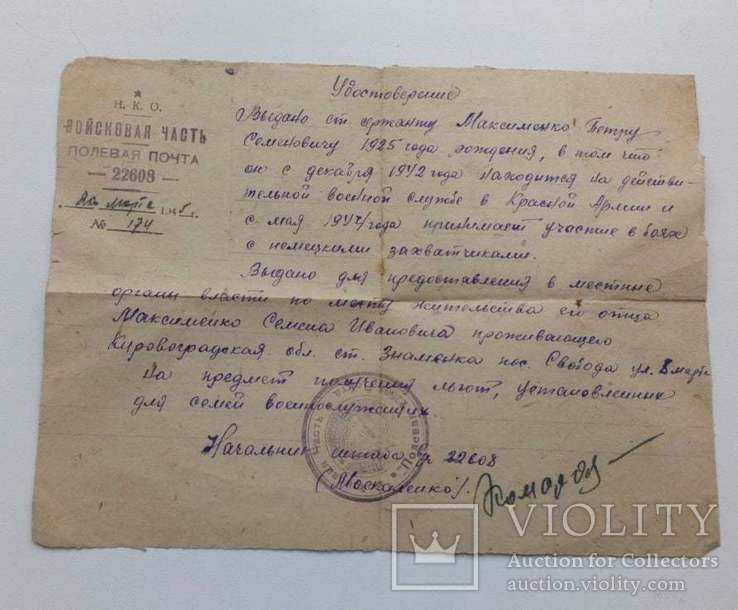 Н. К. О.
ВОЙСКОВАЯ ЧАСТЬ
ПОЛЕВАЯ ПОЧТА
— 22608 —
марта 194 г.
№ 174
Удостоверение
Выдано ст. сержанту Максименко Петру
Семеновичу 1925 года рождения, в том что
он с декабря 1942 года находится на действи-
тельной военной службе в Красной Армии и
с мая 1944 года принимает участие в боях
с немецкими захватчиками.
Выдано для предоставления в местные
органы власти по месту жительства его отца
Максименко Семена Ивановича проживающего
Кировоградская обл. ст. Знаменка пос. Свобода ул. 8 марта
На предмет получения льгот, установленных
для семей военнослужащих
Начальник штаба пп 22608
(Москаленко).
VIOLITY
Auction for Collectors
auction.violity.com